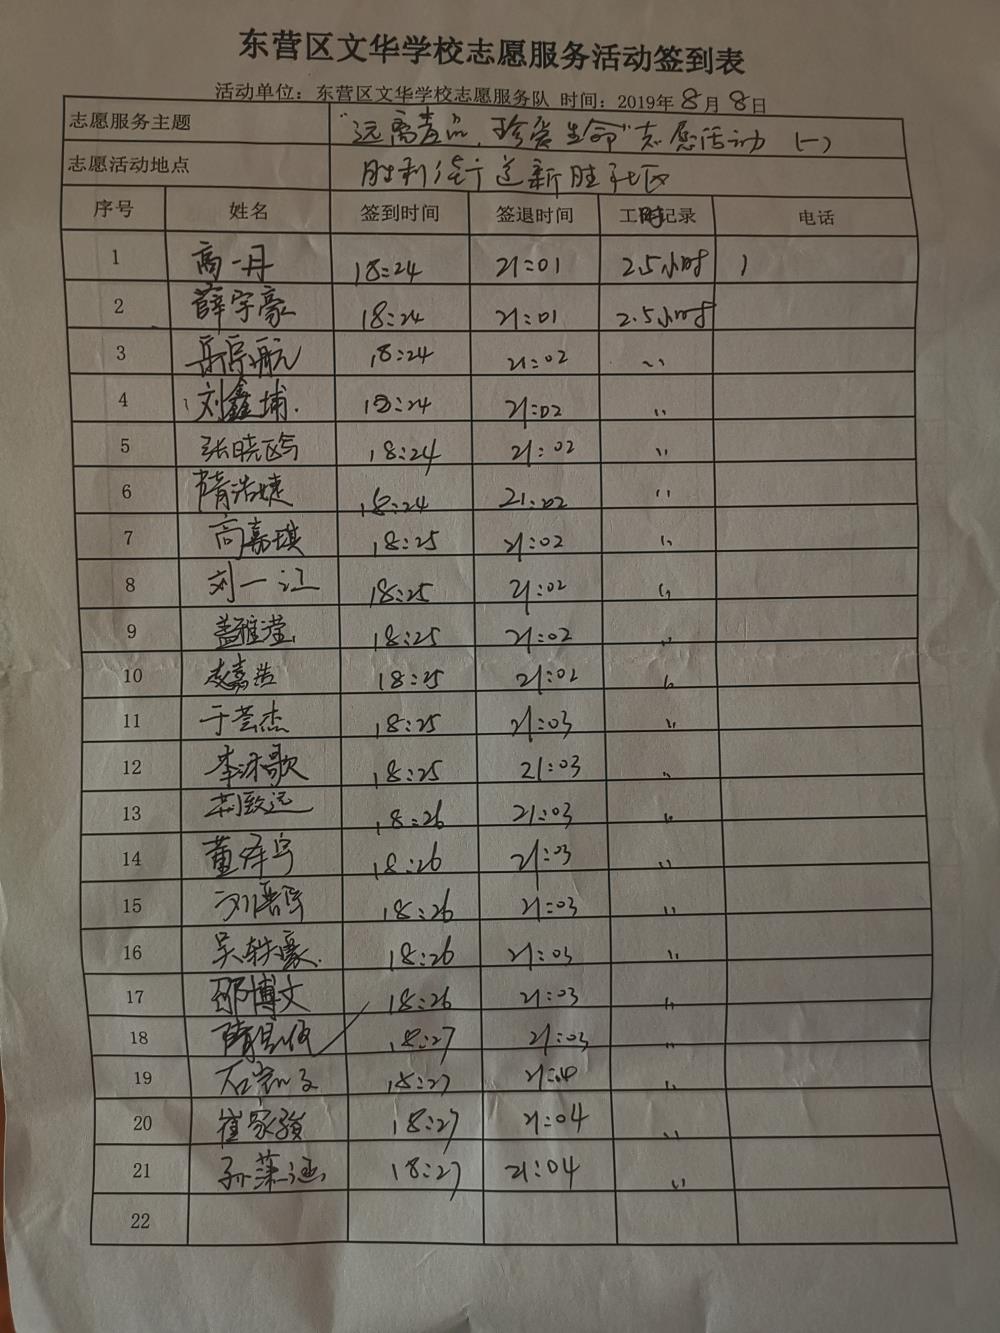 东营区文华学校志愿服务活动签到表
活动单位：东营区文华学校志愿服务队 时间：2019年 8 月 8 日
志愿服务主题 "远离毒品，珍爱生命"志愿活动 (一)
志愿活动地点 胜利街道新胜社区
序号 姓名 签到时间 签退时间 工时记录 电话
1 高一丹 18:24 21:01 2.5小时
2 薛宇豪 18:24 21:01 2.5小时
3 18:24 21:02 〃
4 刘鑫埔 18:24 21:02 〃
5 张晓鸥 18:24 21:02 〃
6 隋浩婕 18:24 21:02 〃
7 高嘉琪 18:25 21:02 〃
8 刘一江 18:25 21:02 〃
9 盖雅滢 18:25 21:02 〃
10 嘉浩 18:25 21:02 〃
11 于芸杰 18:25 21:03 〃
12 李沐歌 18:25 21:03 〃
13 荆致远 18:26 21:03 〃
14 董泽宇 18:26 21:03 〃
15 刘 18:26 21:03 〃
16 吴轶豪 18:26 21:03 〃
17 邵博文 18:26 21:03 〃
18 隋 18:27 21:03 〃
19 石 18:27 〃
20 崔家骏 18:27 21:04 〃
21 孙蕖涵 18:27 21:04 〃
22